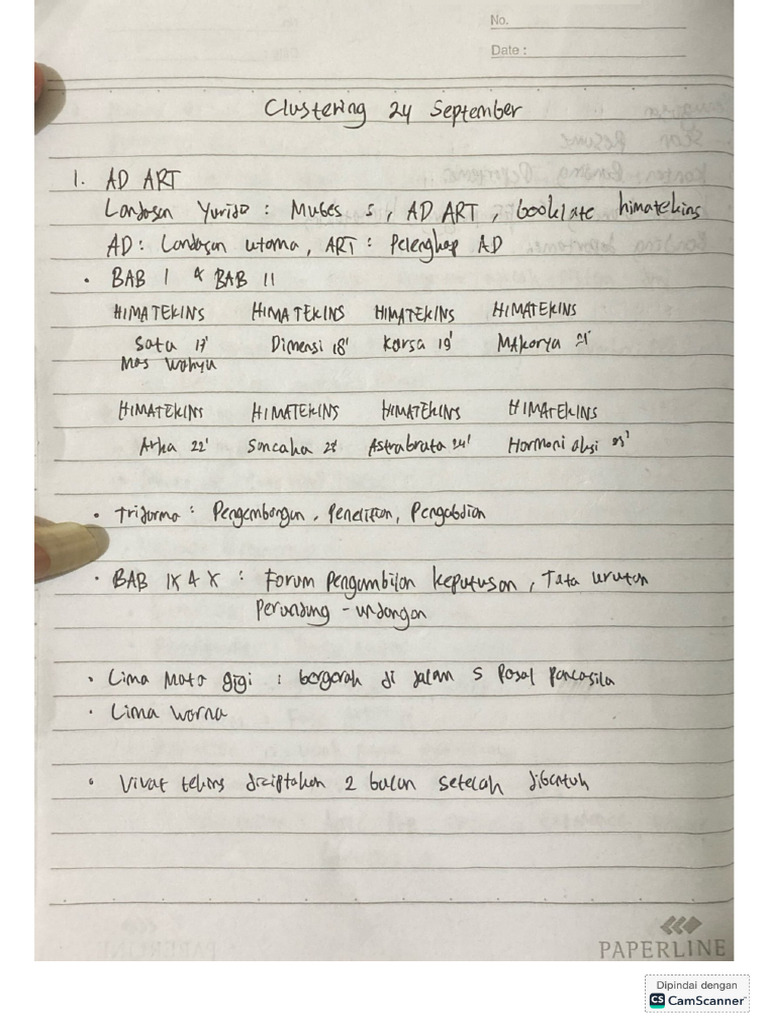 No.
Date :
Clustering 24 September
1. AD ART
Landasan Yuridis : Mubes 5, AD ART, booklate himatekins
AD : Landasan utama, ART : Pelengkap AD
• BAB I & BAB II
HIMATEKINS HIMATEKINS HIMATEKINS HIMATEKINS
Satu 17' Dimensi 18' Karsa 19' Makarya 21'
Mas Wahyu
HIMATEKINS HIMATEKINS HIMATEKINS HIMATEKINS
Arka 22' Sancaka 23' Astrabrata 24' Harmoni aksi 25'
• Tridarma : Pengembangan, Penelitian, Pengabdian
• BAB IX & X : Forum Pengambilan keputusan, Tata urutan
Perundang - undangan
• Lima Mata gigi : bergerak di jalan 5 Pasal Pancasila
• Lima warna
• Vivat tekins diciptakan 2 bulan setelah dibentuk
PAPERLINE
Dipindai dengan
CS CamScanner